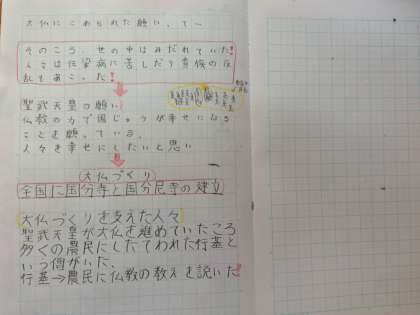 大仏にこめられた願いって〜
そのころ、世の中はみだれていた!
人々は伝染病に苦しだり貴族の反
乱もあこった!
聖武天皇の願い
仏教の力で国じゅうが幸せになる
ことを願っている。
人々を幸せにしたいと思い
大仏づくり
全国に国分寺と国分尼寺の建立
大仏づくりを支えた人々
聖武天皇が大仏を進めていたころ
多くの農民にしたわれた行基と
いう僧がいた。
行基→農民に仏教の教えを説いた!